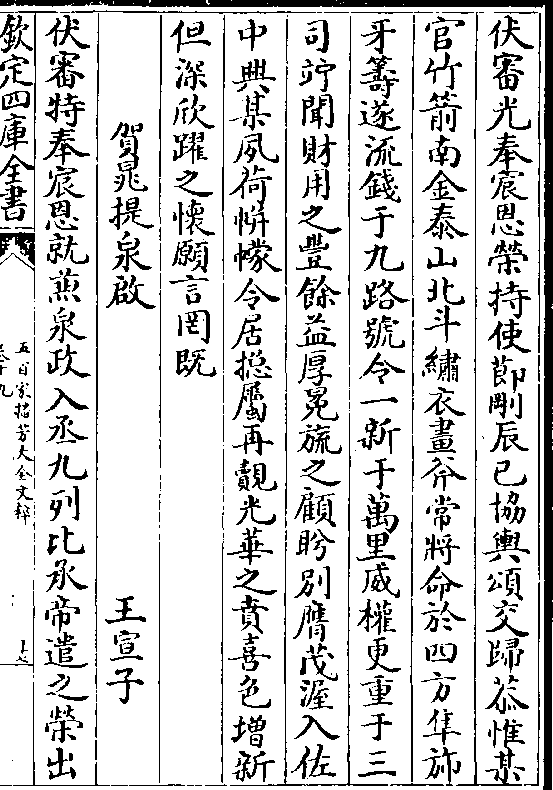 伏審光奉宸恩榮持使節剛辰已協輿頌交歸恭惟某
官竹箭南金泰山北斗繡衣畫斧常將命於四方隼旆
牙籌遂流錢于九路號令一新于萬里威權更重于三
司竚聞財用之豐餘益厚冕旒之顧盻別膺茂渥入佐
中興某夙荷帡幪令居摠屬再覿光華之賁喜色增新
但深欣躍之懷願言罔既
賀晁提泉啟
王宣子
伏審特奉宸恩就蒞泉政入丞九列比承帝遣之榮出
欽定四庫全書
五百家播芳大全文粹
卷十九